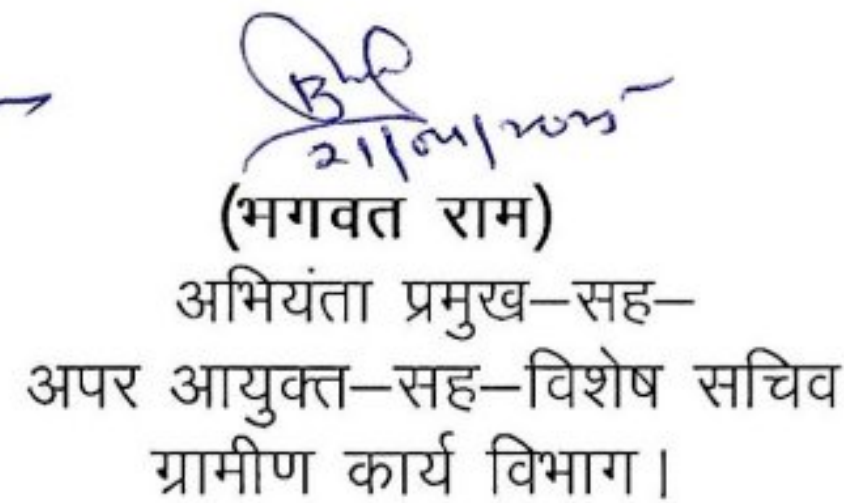 (भगवत राम)
अभियंता प्रमुख–सह–
अपर आयुक्त–सह–विशेष सचिव
ग्रामीण कार्य विभाग।